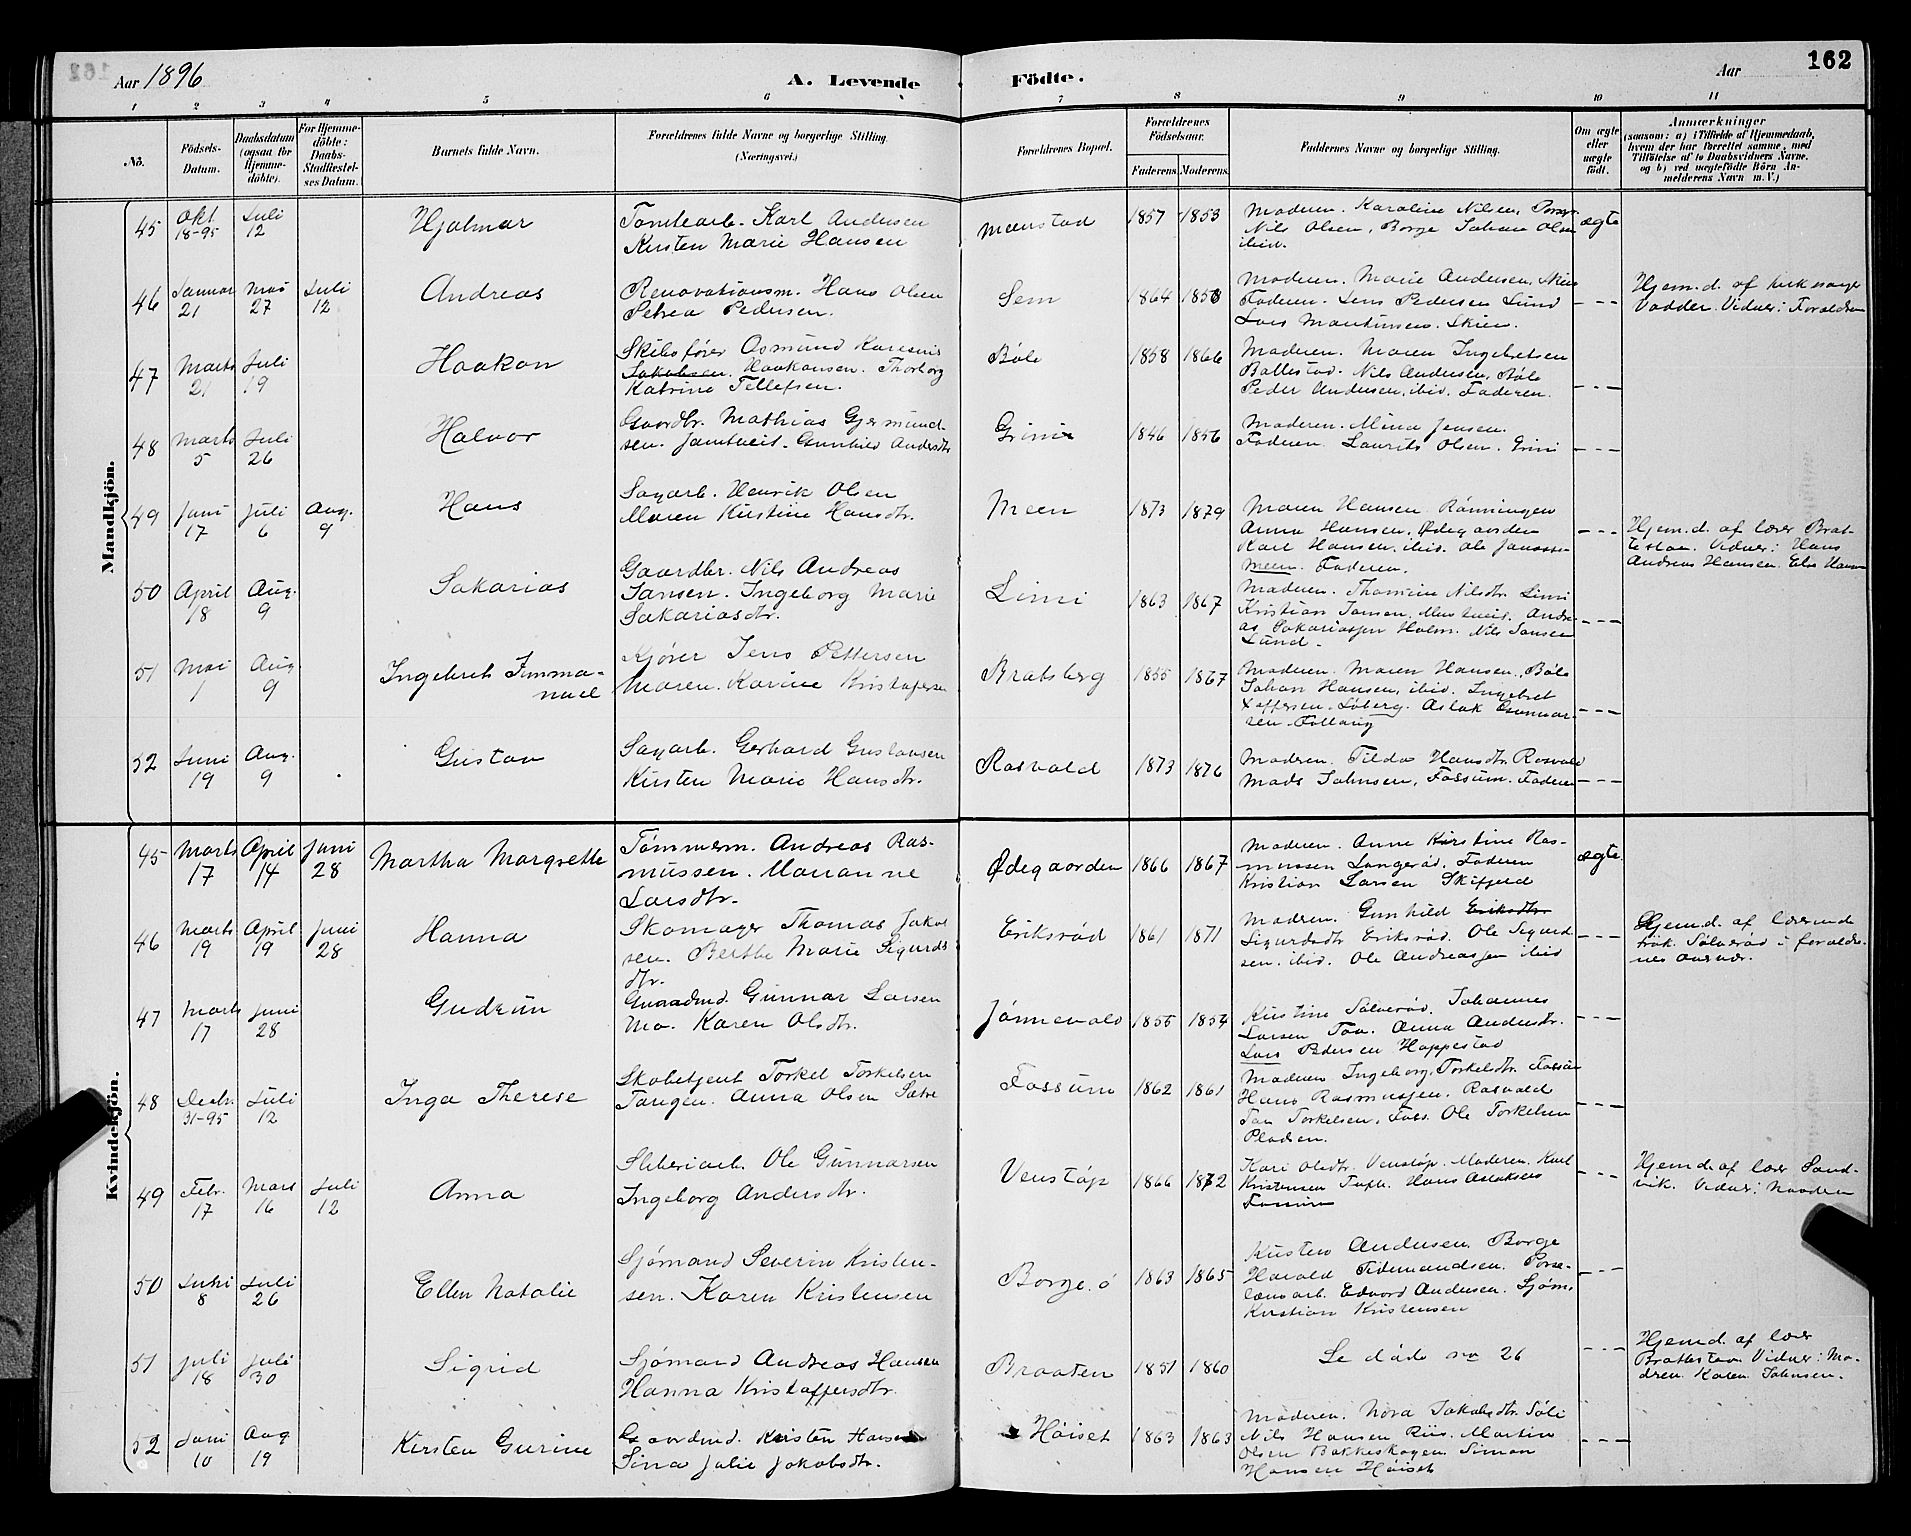 162
Aar 1896
A. Levende Födte.
Aar
1 2 3 4 5 6 7 8 9 10 11
No.
Födsels-Datum.
Daabsdatum (ogsaa for Hjemme-döbte).
For Hjemme-döbte: Daabs-Stadfæstel-ses Datum.
Barnets fulde Navn.
Forældrenes fulde Navne og borgerlige Stilling.
(Næringsvei.)
Forældrenes Bopæl.
Forældrenes Födselsaar.
Faderens. Moderens.
Faddernes Navne og borgerlige Stilling.
Om ægte eller uægte født.
Anmærkninger
(saasom: a) i Tilfælde af Hjemmedaab,
hvem der har forrettet samme, med
Tilföielse af to Daabsvidners Navne,
og b) ved uægtefödte Börn An-
melderens Navn m. V.)
Mandkjön.
45 Okt. 18-95 Juli 12 Hjalmar
Tomtearb. Karl Andersen
Kirsten Marie Hansen
Menstad 1857 1853
Moderen. Karoline Nilsen, Porsgr.
Nils Olsen, Borge Johan Olsen
ibid.
ægte
46 Januar 21 Mai 27 Juli 12 Andreas
Renovationsm. Hans Olsen
Petrea Pedersen.
Sem 1864 1858
Moderen. Marie Andersen, Skien
Faderen. Jens Pedersen Lund
Lars Martinsen. Skien.
- - -
Hjem.d. af kirkesanger
Vadder. Vidner: Forældrene
47 Marts 21 Juli 19 Haakon
Skibsfører Osmund Karenius
Jakobsen. Haakonsen. Thorborg
Katrine Tellefsen.
Bøle 1858 1866
Moderen. Maren Ingebretsen
Ballestad. Nils Andersen, Bøle
Peder Andersen, ibid. Faderen.
- - -
48 Marts 5 Juli 26 Halvor
Gaardbr. Mathias Gjermund-
sen. Jamtveit. Gunhild Andersdtr
Grini 1846 1856
Moderen. Mina Jensen.
Faderen. Laurits Olsen. Grini
- - -
49 Juni 17 Juli 6 Aug. 9 Hans
Sagarb. Henrik Olsen
Maren Kirstine Hansdtr.
Meen 1873 1879
Maren Hansen Rønningen
Anna Hansen, Ødegaarden
Karl Hansen, ibid. Ole Janssen
Meen. Faderen.
- - -
Hjem.d. af lærer Brat-
testaa. Vidner: Hans
Andreas Hansen. Else Hansen
50 April 18 Aug. 9 Sakarias
Gaardbr. Nils Andreas
Jansen. Ingeborg Marie
Sakariasdtr.
Limi 1863 1867
Moderen. Thomine Nilsdtr. Limi
Kristian Jansen, Andre-
as Sakariassen Holm. Nils Jansen
Lund.
- - -
51 Mai 1 Aug 9 Ingebret Imma-
nuel
Kjører Jens Pettersen
Maren. Karine Kristofersen
Bratsberg 1855 1867
Moderen. Maren Hansen, Bøle
Johan Hansen, ibid. Ingebret
Løberg. Aslak Gunnar-
sen
- - -
52 Juni 19 Aug. 9 Gustav
Sagarb. Gerhard Gustavsen
Kirsten Marie Hansdtr.
Rasvald 1873 1876
Moderen. Tilda Hansdtr. Rasvald
Mads Johnsen, Fossum. Faderen
- - -
Kvindekjön.
45 Marts 17 April 14 Juni 28 Martha Margrethe
Tømmerm. Andreas Ras-
mussen. Marianne
Larsdtr.
Ødegaarden 1866 1867
Moderen. Anne Kirstine Ras-
mussen Langerød. Faderen
Kristian Larsen Skifjeld
ægte.
46 Marts 19 April 19 Juni 28 Hanna
Skomager Thomas Jakob
sen. Berthe Marie Sigurds
dtr.
Eriksrød 1861 1871
Moderen. Gunhild Eriksdtr.
Sigurdsdtr Eriksrød. Ole Sigurd-
sen. ibid. Ole Andreassen ibid
- - -
Hjem.d. af lærerinde
frøk. Solverød i forældre-
nes nærvær.
47 Marts 17 Juni 28 Gudrun
Gaardmd. Gunnar Larsen
Mo. Karen Olsdtr.
Jønnevald 1855 1854
Kirstine Solverød. Johannes
Larsen Foss. Anna Andersdtr.
Lars Pedersen Hoppestad
- - -
48 Decbr. 31-95 Juli 12 Inga Therese
Skobetjent Torkel Torkelsen
Tangen. Anna Olsen Sætre
Fossum 1862 1861
Moderen Ingeborg Torkelsdtr. Fossum
Hans Rasmussen. Rasvald
Jan Torkelsen, Foss. Ole Torkelsen
Pladsen.
- - -
49 Febr. 17 Mars 16 Juli 12 Anna
Sliberiarb. Ole Gunnarsen
Ingeborg Andersdtr.
Venstøp 1866 1872
Kari Olsdtr. Venstøp. Moderen. Karl
Kristensen Tufte. Hans Aslaksen
Fossum
- - -
Hjem.d. af lærer Sand-
vik. Vidner:
50 Juni 8 Juli 26 Ellen Natalie
Sjømand Severin Kristen-
sen. Karen Kristensen
Borge. ø 1863 1865
Kirsten Andersen. Borge
Harald Tidemandsen. Porse-
lænsarb. Edvard Andersen. Sjøm.
Kristian Kristensen
- - -
51 Juli 18 Juli 30 Sigrid
Sjømand Andreas Hansen
Hanna Kristoffersdtr.
Braaten 1851 1860
Se døde no 26
- - -
Hjem.d. af lærer
Brattestaa. Vidner: Mo-
dren. Karen Johnsen.
52 Juni 10 Aug 19 Kirsten Gurine
Gaardmd. Kristen Hansen
Sina Julie Jakobsdtr.
Høiset 1863 1863
Moderen. Nora Jakobsdtr. Søli
Nils Hansen Riis. Martin
Olsen Bakkeskogen. Simon
Hansen Høiset
- - -